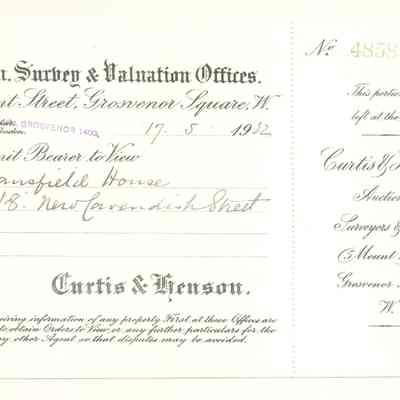 n. Survey & Valuation Offices.
nt Street, Grosvenor Square, W.
GROSVENOR 1400.
17 . 5 . 1932
mit Bearer to View
ansfield House
18. New Cavendish Street
Curtis & Henson.
eiving information of any property First at these Offices are
to obtain Orders to View, or any further particulars for the
ny other Agent so that disputes may be avoided.
No. 4858
This portio
left at the
Curtis &
Auction
Surveyors &
5 Mount
Grosvenor
W.